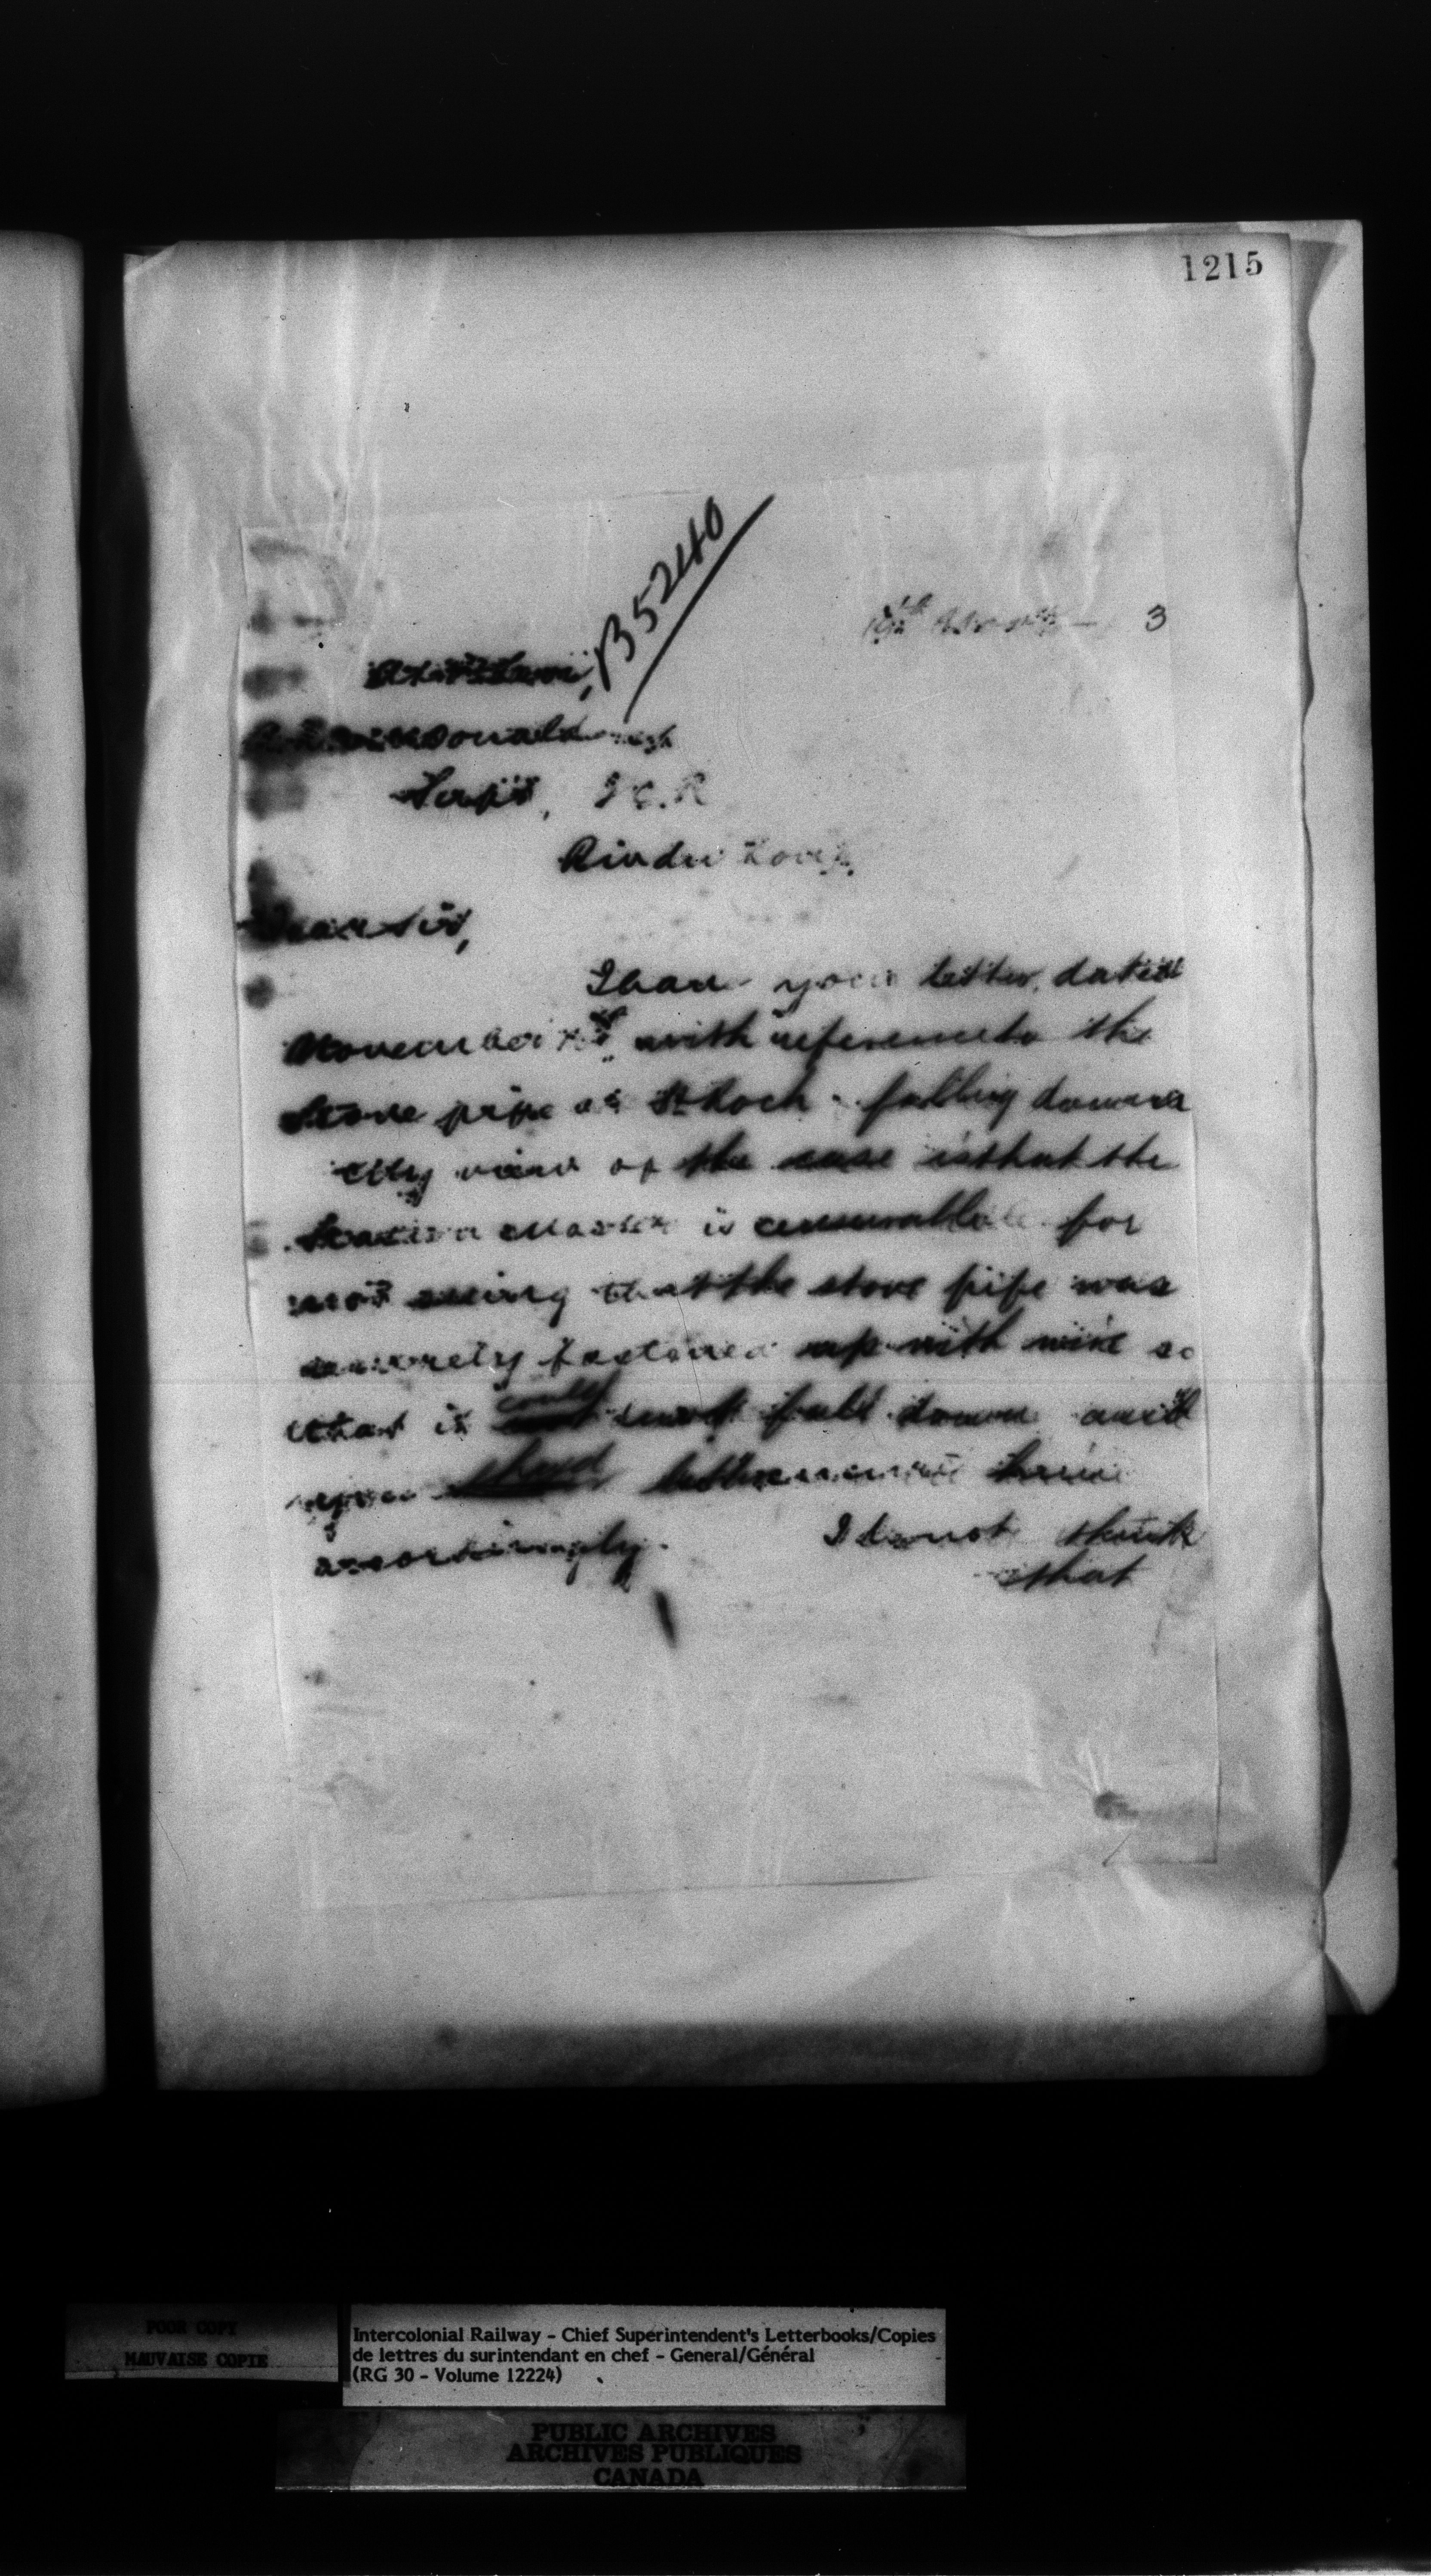 1215
B5240
19th Nov 3
McDonald
Supt, I.C.R
Rivdu Loup.
Dear Sir,
I have your letter, dated
November with reference to the
Stove pipe at St Roch falling down
My view of the case is that the
Station Master is censurable for
not seeing that the stove pipe was
securely fastened up with wire so
that it could not fall down and
you shoud him
accordingly. I do not think
that
POOR COPY
MAUVAISE COPIE
Intercolonial Railway - Chief Superintendent's Letterbooks/Copies
de lettres du surintendant en chef - General/Général
(RG 30 - Volume 12224)
PUBLIC ARCHIVES
ARCHIVES PUBLIQUES
CANADA